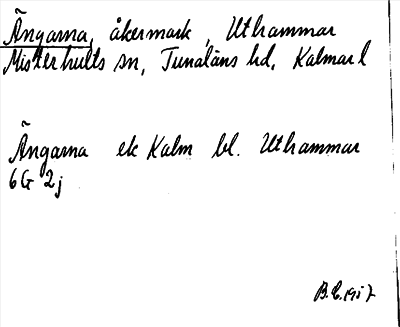 Ängarna, åkermark, Uthammar
Misterhults sn, Tunaläns hd, Kalmar l
Ängarna ek Kalm bl. Uthammar
6G 2j